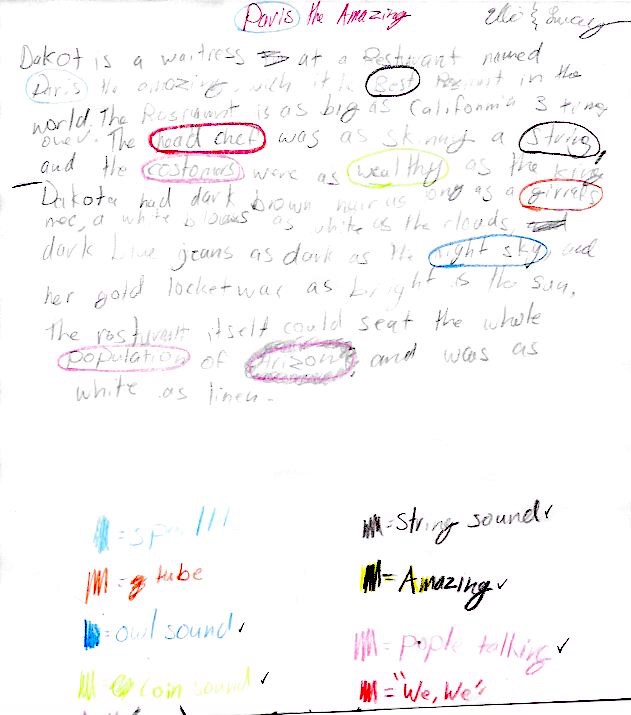 Paris the Amazing
Dakot is a waitress at a Resturant named
Paris the amazing. with it is Best in the
world. The Resurant is as big as California 3 times
over. The head chef was as skinny a string,
and the costomers were as wealthy as the king
Dakota had dark brown hair as long as a giraffs
nec, a white blouse as white as the clouds,
dark blue jeans as dark as the night sky, and
her gold locket was as bright is the sun.
The resturant itself could seat the whole
population of Arizona, and was as
white as linen.
= String sound ✓
= g tube
= Amazing ✓
= owl sound ✓
= pople talking ✓
= coin sound ✓
= "We, We"